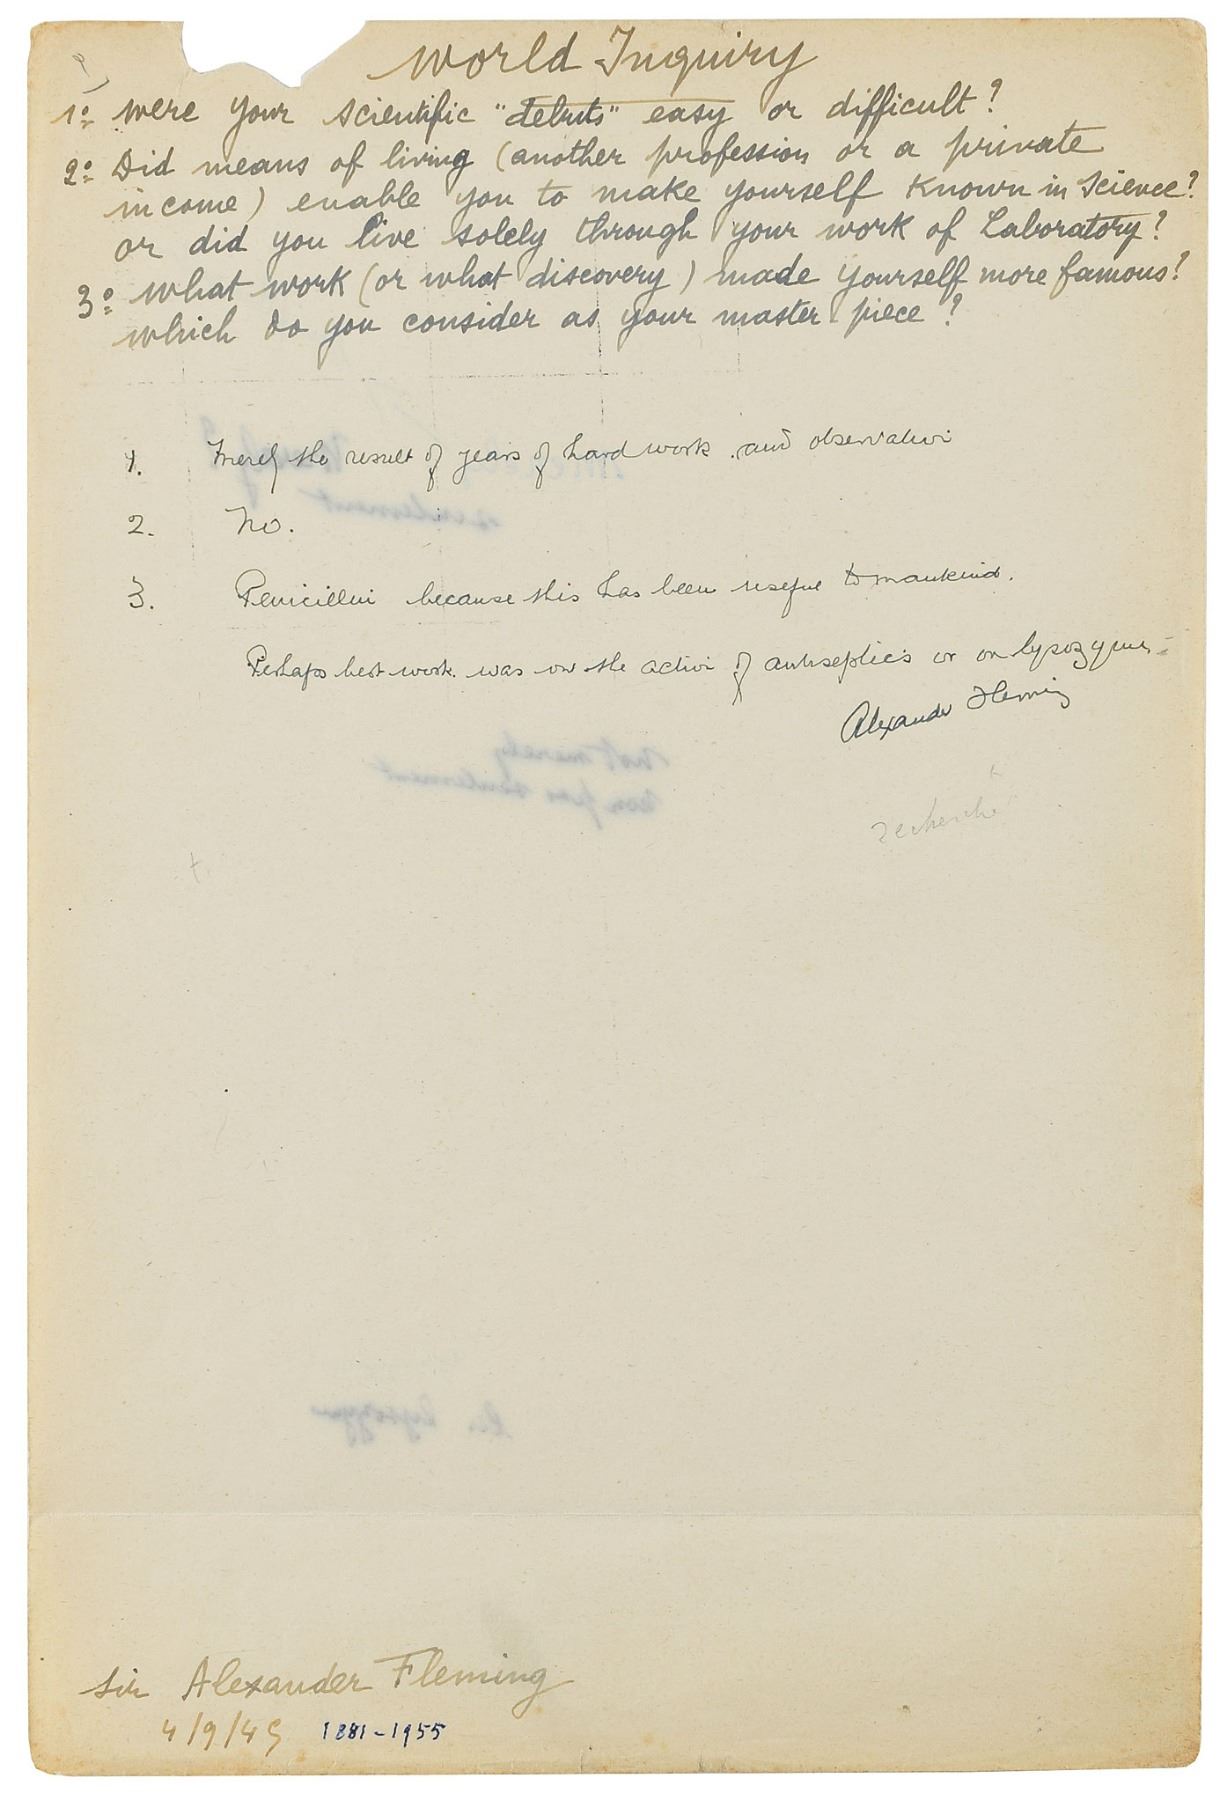 World Inquiry
1º were your scientific "debuts" easy or difficult?
2º Did means of living (another profession or a private
income) enable you to make yourself known in Science?
or did you live solely through your work of Laboratory?
3º what work (or what discovery) made yourself more famous?
which do you consider as your master piece?
1. Merely the result of years of hard work and observation
2. No.
3. Penicillin because this has been useful to mankind.
Perhaps best work was on the action of antiseptics or on lysozyme.
Alexander Fleming
not merely
non pas seulement
Sir Alexander Fleming
4/9/45 1881-1955